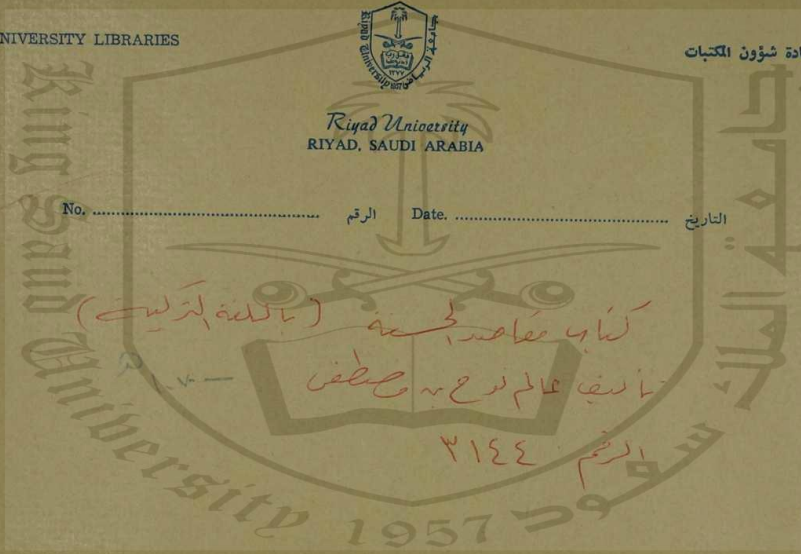 NIVERSITY LIBRARIES
ادة شؤون المكتبات
Riyad University
RIYAD, SAUDI ARABIA
No. ........................ الرقم Date. ........................ التاريخ
كتاب مقاصد الحسنه (باللغة التركية)
تأليف عالم نوح بن مصطفى
الرقم ٣١٤٤
King Saud University
جامعة الملك سعود
1957